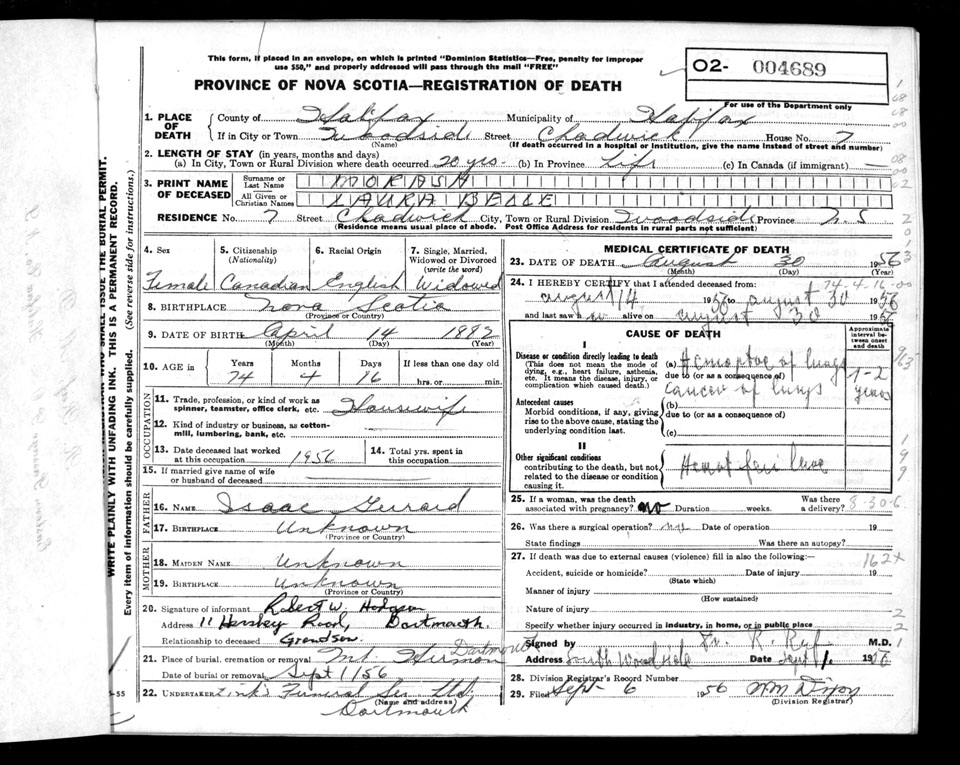 This form, if placed in an envelope, on which is printed "Dominion Statistics—Free, penalty for improper
use $50," and properly addressed will pass through the mail "FREE"
PROVINCE OF NOVA SCOTIA—REGISTRATION OF DEATH
O2- 004689
For use of the Department only
1. PLACE OF DEATH
County of Halifax Municipality of Halifax
If in City or Town Woodside Street Chadwick House No. 7
(Name) (If death occurred in a hospital or institution, give the name instead of street and number)
2. LENGTH OF STAY (in years, months and days)
(a) In City, Town or Rural Division where death occurred 20 yrs. (b) In Province Life (c) In Canada (if immigrant) —
3. PRINT NAME OF DECEASED
Surname or Last Name MORASH
All Given or Christian Names LAURA BELLE
RESIDENCE No. 7 Street Chadwick City, Town or Rural Division Woodside Province N.S
(Residence means usual place of abode. Post Office Address for residents in rural parts not sufficient)
4. Sex 5. Citizenship (Nationality) 6. Racial Origin 7. Single, Married, Widowed or Divorced (write the word)
Female Canadian English Widowed
8. BIRTHPLACE Nova Scotia
(Province or Country)
9. DATE OF BIRTH April 14 1882
(Month) (Day) (Year)
10. AGE IN Years Months Days If less than one day old
74 4 16 hrs. or min.
OCCUPATION
11. Trade, profession or kind of work as spinner, teamster, office clerk, etc. Housewife
12. Kind of industry or business, as cotton-mill, lumbering, bank, etc.
13. Date deceased last worked at this occupation 1956 14. Total yrs. spent in this occupation
15. If married give name of wife or husband of deceased
FATHER
16. NAME Isaac
17. BIRTHPLACE Unknown
(Province or Country)
MOTHER
18. MAIDEN NAME Unknown
19. BIRTHPLACE Unknown
(Province or Country)
20. Signature of informant Robert W. Hodgson
Address 11 Hershey Road, Dartmouth.
Relationship to deceased Grandson.
21. Place of burial, cremation or removal Mt Hermon Dartmouth
Date of burial or removal Sept 1/56
22. UNDERTAKER Funeral Ser Ltd
(Name and address)
Dartmouth
MEDICAL CERTIFICATE OF DEATH
23. DATE OF DEATH August 30 1956
(Month) (Day) (Year)
74-4-16-00
24. I HEREBY CERTIFY that I attended deceased from:
august 14 1956 to august 30 1956
and last saw alive on august 30 1956
CAUSE OF DEATH
Approximate interval between onset and death
I
Disease or condition directly leading to death
(This does not mean the mode of dying, e.g., heart failure, asthenia, etc. It means the disease, injury, or complication which caused death.)
(a) of lungs
due to (or as a consequence of)
cancer of lungs 1-2 years
Antecedent causes
Morbid conditions, if any, giving rise to the above cause, stating the underlying condition last.
(b)
due to (or as a consequence of)
(c)
II
Other significant conditions
contributing to the death, but not related to the disease or condition causing it.
25. If a woman, was the death associated with pregnancy? no Duration weeks. Was there a delivery? 8-30-6
26. Was there a surgical operation? Date of operation 19
State findings Was there an autopsy?
27. If death was due to external causes (violence) fill in also the following:—
162x
Accident, suicide or homicide? Date of injury 19
(State which)
Manner of injury
(How sustained)
Nature of injury
Specify whether injury occurred in industry, in home, or in public place
Signed by Dr. R. M.D.
Address South Date Sept 1. 1956
28. Division Registrar's Record Number
29. Filed Sept 6 1956 Wm Dixon
(Division Registrar)
WRITE PLAINLY WITH UNFADING INK. THIS IS A PERMANENT RECORD.
Every item of information should be carefully supplied. (See reverse side for instructions.)
ISSUE THE BURIAL PERMIT.
-55